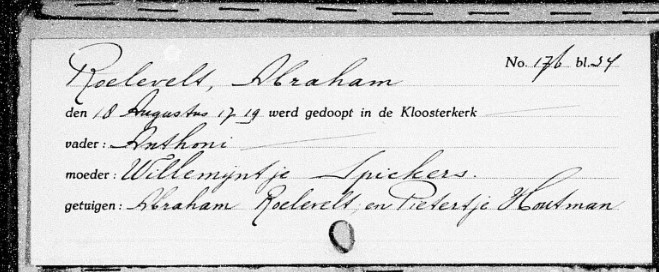 Roelevelt, Abraham No. 176 bl. 54
den 18 Augustus 1719 werd gedoopt in de Kloosterkerk
vader: Anthoni
moeder: Willemyntje Spiekers.
getuigen: Abraham Roelevelt, en Pietertje Houtman